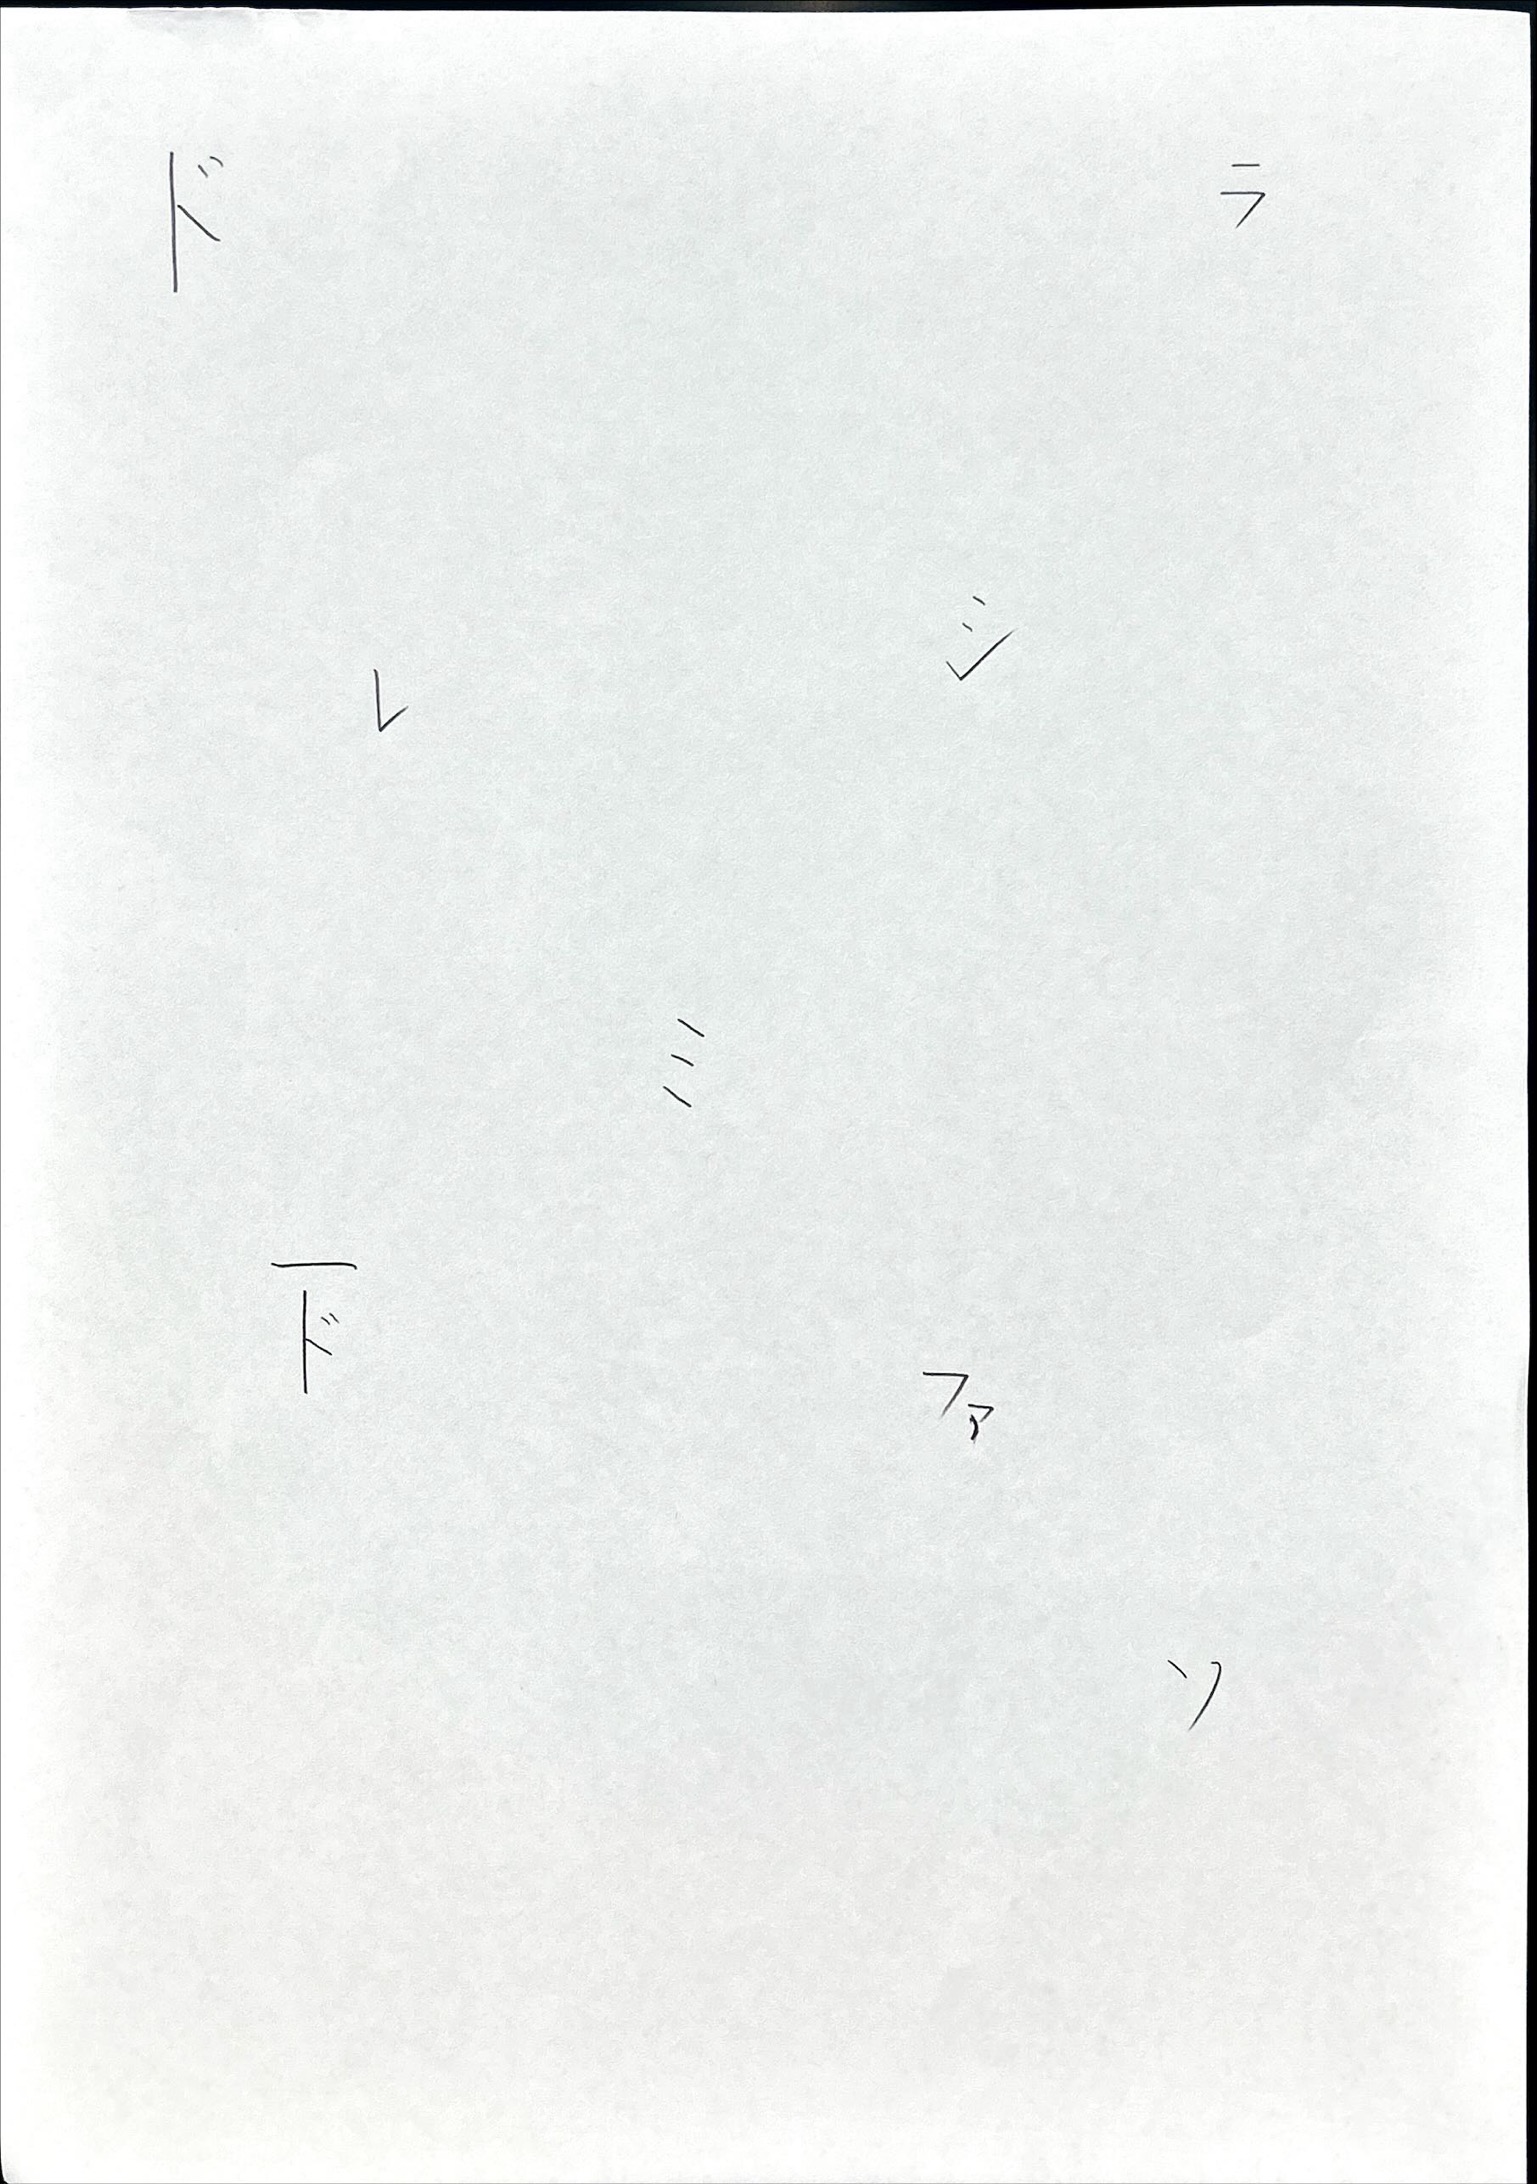 ド
ラ
シ
レ
ミ
ド
ファ
ソ